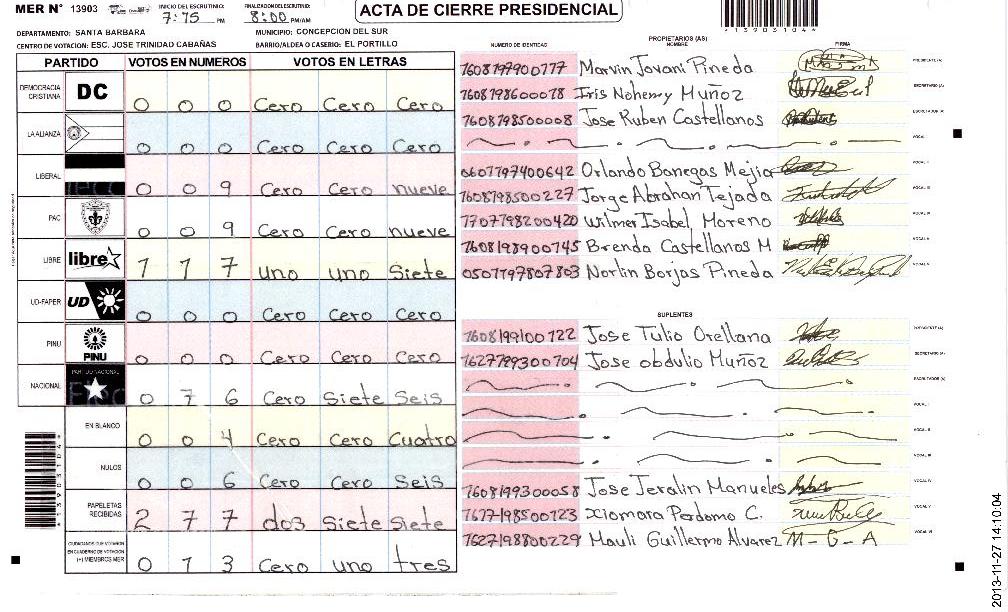 MER N° 13903 INICIO DEL ESCRUTINIO: 7:15 PM FINALIZACION DEL ESCRUTINIO: 8:00 PM/AM
ACTA DE CIERRE PRESIDENCIAL
*13903104*
DEPARTAMENTO: SANTA BARBARA MUNICIPIO: CONCEPCION DEL SUR
CENTRO DE VOTACION: ESC. JOSE TRINIDAD CABAÑAS BARRIO/ALDEA O CASERIO: EL PORTILLO
PARTIDO VOTOS EN NUMEROS VOTOS EN LETRAS
DEMOCRACIA CRISTIANA DC 0 0 0 Cero Cero Cero
LA ALIANZA 0 0 0 Cero Cero Cero
LIBERAL 0 0 9 Cero Cero nueve
PAC 0 0 9 Cero Cero nueve
LIBRE libre 1 1 7 uno uno Siete
UD-FAPER UD 0 0 0 Cero Cero Cero
PINU PINU 0 0 0 Cero Cero Cero
NACIONAL PARTIDO NACIONAL 0 7 6 Cero Siete Seis
EN BLANCO 0 0 4 Cero Cero Cuatro
NULOS 0 0 6 Cero Cero Seis
PAPELETAS RECIBIDAS 2 7 7 dos Siete Siete
CIUDADANOS QUE VOTARON EN CUADERNO DE VOTACION (+) MIEMBROS MER 0 1 3 Cero uno tres
*13903104*
PROPIETARIOS (AS)
NUMERO DE IDENTIDAD NOMBRE FIRMA
1608197900177 Marvin Jovani Pineda PRESIDENTE (A)
1608198600078 Iris Nohemy Muñoz SECRETARIO (A)
1608198500008 Jose Ruben Castellanos ESCRUTADOR (A)
VOCAL I
0607197400642 Orlando Banegas Mejia VOCAL II
1608198500227 Jorge Abrahan Tejada VOCAL III
1707198200420 Wilmer Isabel Moreno VOCAL IV
1608198900145 Brenda Castellanos M VOCAL V
0501197807803 Norlin Borjas Pineda VOCAL VI
SUPLENTES
1608199100122 Jose Tulio Orellana PRESIDENTE (A)
1627199300104 Jose obdulio Muñoz SECRETARIO (A)
ESCRUTADOR (A)
VOCAL I
VOCAL II
VOCAL III
1608199300058 Jose Jeralin Manueles VOCAL IV
1617198500123 Xiomara Perdomo C. VOCAL V
1627198800229 Mauli Guillermo Alvarez M - G - A VOCAL VI
2013-11-27 14:10:04